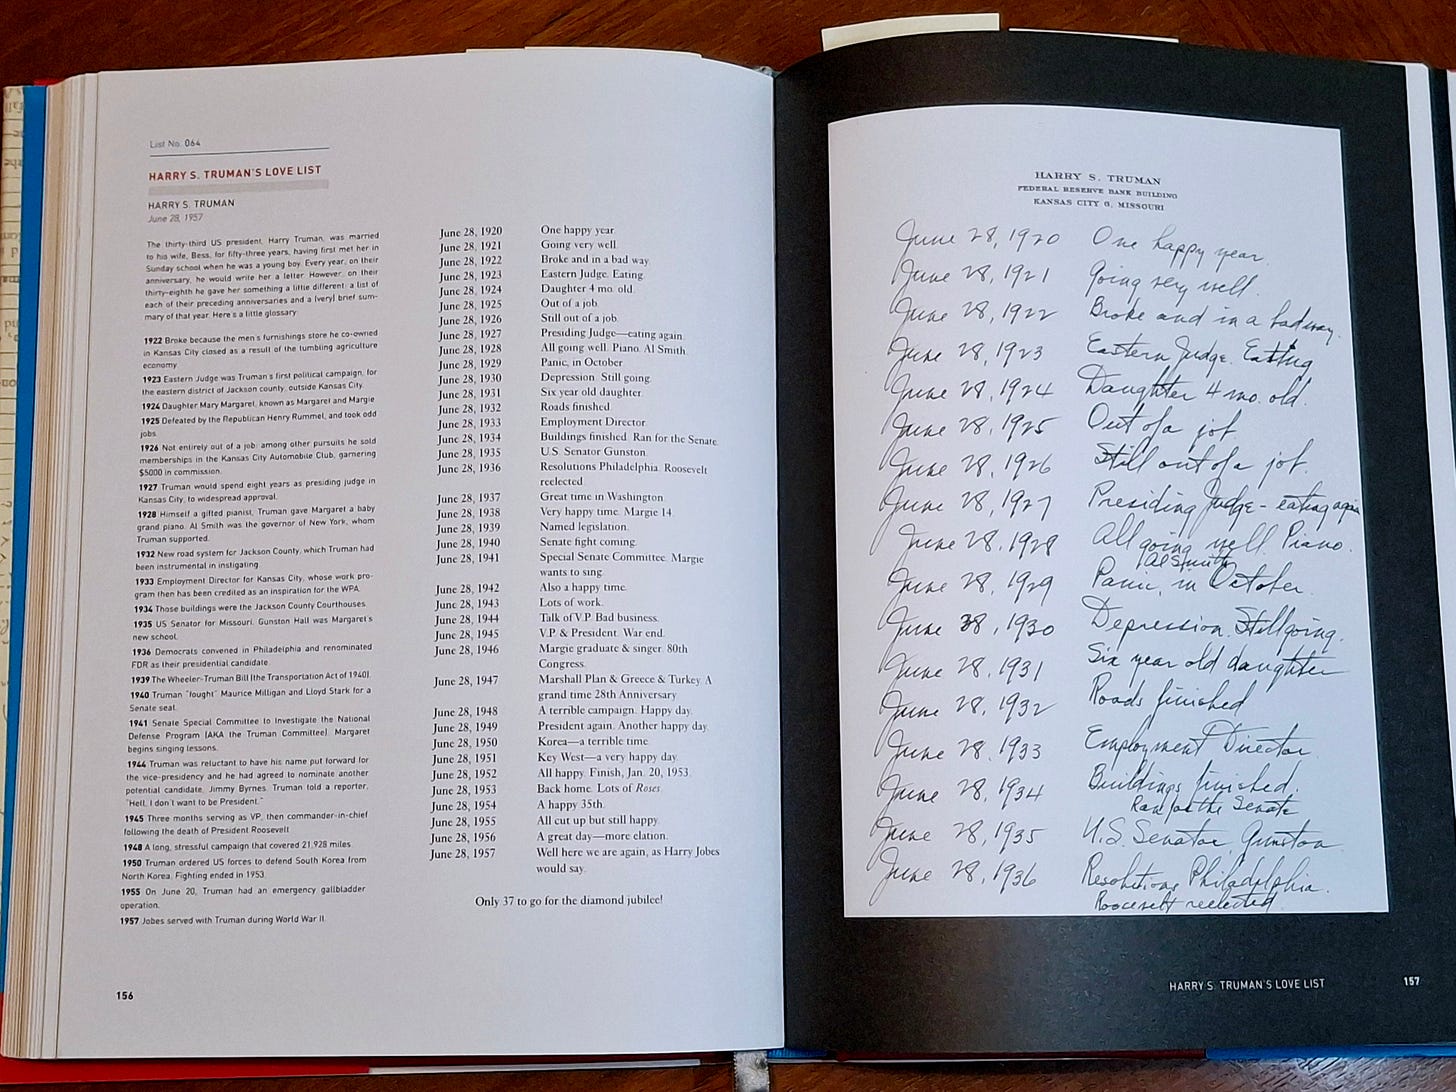 List No. 064
HARRY S. TRUMAN'S LOVE LIST
HARRY S. TRUMAN
June 28, 1957
The thirty-third US president, Harry Truman, was married
to his wife, Bess, for fifty-three years, having first met her in
Sunday school when he was a young boy. Every year, on their
anniversary, he would write her a letter. However, on their
thirty-eighth he gave her something a little different: a list of
each of their preceding anniversaries and a (very) brief sum-
mary of that year. Here's a little glossary:
1922 Broke because the men's furnishings store he co-owned
in Kansas City closed as a result of the tumbling agriculture
economy.
1923 Eastern Judge was Truman's first political campaign, for
the eastern district of Jackson county, outside Kansas City.
1924 Daughter Mary Margaret, known as Margaret and Margie.
1925 Defeated by the Republican Henry Rummel, and took odd
jobs.
1926 Not entirely out of a job: among other pursuits he sold
memberships in the Kansas City Automobile Club, garnering
$5000 in commission.
1927 Truman would spend eight years as presiding judge in
Kansas City, to widespread approval.
1928 Himself a gifted pianist, Truman gave Margaret a baby
grand piano. Al Smith was the governor of New York, whom
Truman supported.
1932 New road system for Jackson County, which Truman had
been instrumental in instigating.
1933 Employment Director for Kansas City, whose work pro-
gram then has been credited as an inspiration for the WPA.
1934 Those buildings were the Jackson County Courthouses.
1935 US Senator for Missouri. Gunston Hall was Margaret's
new school.
1936 Democrats convened in Philadelphia and renominated
FDR as their presidential candidate.
1939 The Wheeler-Truman Bill (the Transportation Act of 1940).
1940 Truman "fought" Maurice Milligan and Lloyd Stark for a
Senate seat.
1941 Senate Special Committee to Investigate the National
Defense Program (AKA the Truman Committee). Margaret
begins singing lessons.
1944 Truman was reluctant to have his name put forward for
the vice-presidency and he had agreed to nominate another
potential candidate, Jimmy Byrnes. Truman told a reporter,
"Hell, I don't want to be President."
1945 Three months serving as VP, then commander-in-chief
following the death of President Roosevelt.
1948 A long, stressful campaign that covered 21,928 miles.
1950 Truman ordered US forces to defend South Korea from
North Korea. Fighting ended in 1953.
1955 On June 20, Truman had an emergency gallbladder
operation.
1957 Jobes served with Truman during World War II.
June 28, 1920 One happy year.
June 28, 1921 Going very well.
June 28, 1922 Broke and in a bad way.
June 28, 1923 Eastern Judge. Eating.
June 28, 1924 Daughter 4 mo. old.
June 28, 1925 Out of a job.
June 28, 1926 Still out of a job.
June 28, 1927 Presiding Judge—eating again.
June 28, 1928 All going well. Piano. Al Smith.
June 28, 1929 Panic, in October.
June 28, 1930 Depression. Still going.
June 28, 1931 Six year old daughter.
June 28, 1932 Roads finished.
June 28, 1933 Employment Director.
June 28, 1934 Buildings finished. Ran for the Senate.
June 28, 1935 U.S. Senator. Gunston.
June 28, 1936 Resolutions Philadelphia. Roosevelt
reelected.
June 28, 1937 Great time in Washington.
June 28, 1938 Very happy time. Margie 14.
June 28, 1939 Named legislation.
June 28, 1940 Senate fight coming.
June 28, 1941 Special Senate Committee. Margie
wants to sing.
June 28, 1942 Also a happy time.
June 28, 1943 Lots of work.
June 28, 1944 Talk of V.P. Bad business.
June 28, 1945 V.P. & President. War end.
June 28, 1946 Margie graduate & singer. 80th
Congress.
June 28, 1947 Marshall Plan & Greece & Turkey. A
grand time 28th Anniversary.
June 28, 1948 A terrible campaign. Happy day.
June 28, 1949 President again. Another happy day.
June 28, 1950 Korea—a terrible time.
June 28, 1951 Key West—a very happy day.
June 28, 1952 All happy. Finish, Jan. 20, 1953.
June 28, 1953 Back home. Lots of Roses.
June 28, 1954 A happy 35th.
June 28, 1955 All cut up but still happy.
June 28, 1956 A great day—more elation.
June 28, 1957 Well here we are again, as Harry Jobes
would say.
Only 37 to go for the diamond jubilee!
156
HARRY S. TRUMAN
FEDERAL RESERVE BANK BUILDING
KANSAS CITY 6, MISSOURI
June 28, 1920 One happy year.
June 28, 1921 Going very well.
June 28, 1922 Broke and in a bad way.
June 28, 1923 Eastern Judge. Eating
June 28, 1924 Daughter 4 mo. old.
June 28, 1925 Out of a job.
June 28, 1926 Still out of a job.
June 28, 1927 Presiding Judge - eating again
June 28, 1928 All going well. Piano.
Al Smith
June 28, 1929 Panic, in October.
June 28, 1930 Depression. Still going.
June 28, 1931 Six year old daughter
June 28, 1932 Roads finished
June 28, 1933 Employment Director.
June 28, 1934 Buildings finished.
Ran for the Senate
June 28, 1935 U.S. Senator. Gunston.
June 28, 1936 Resolutions Philadelphia.
Roosevelt reelected.
HARRY S. TRUMAN'S LOVE LIST
157